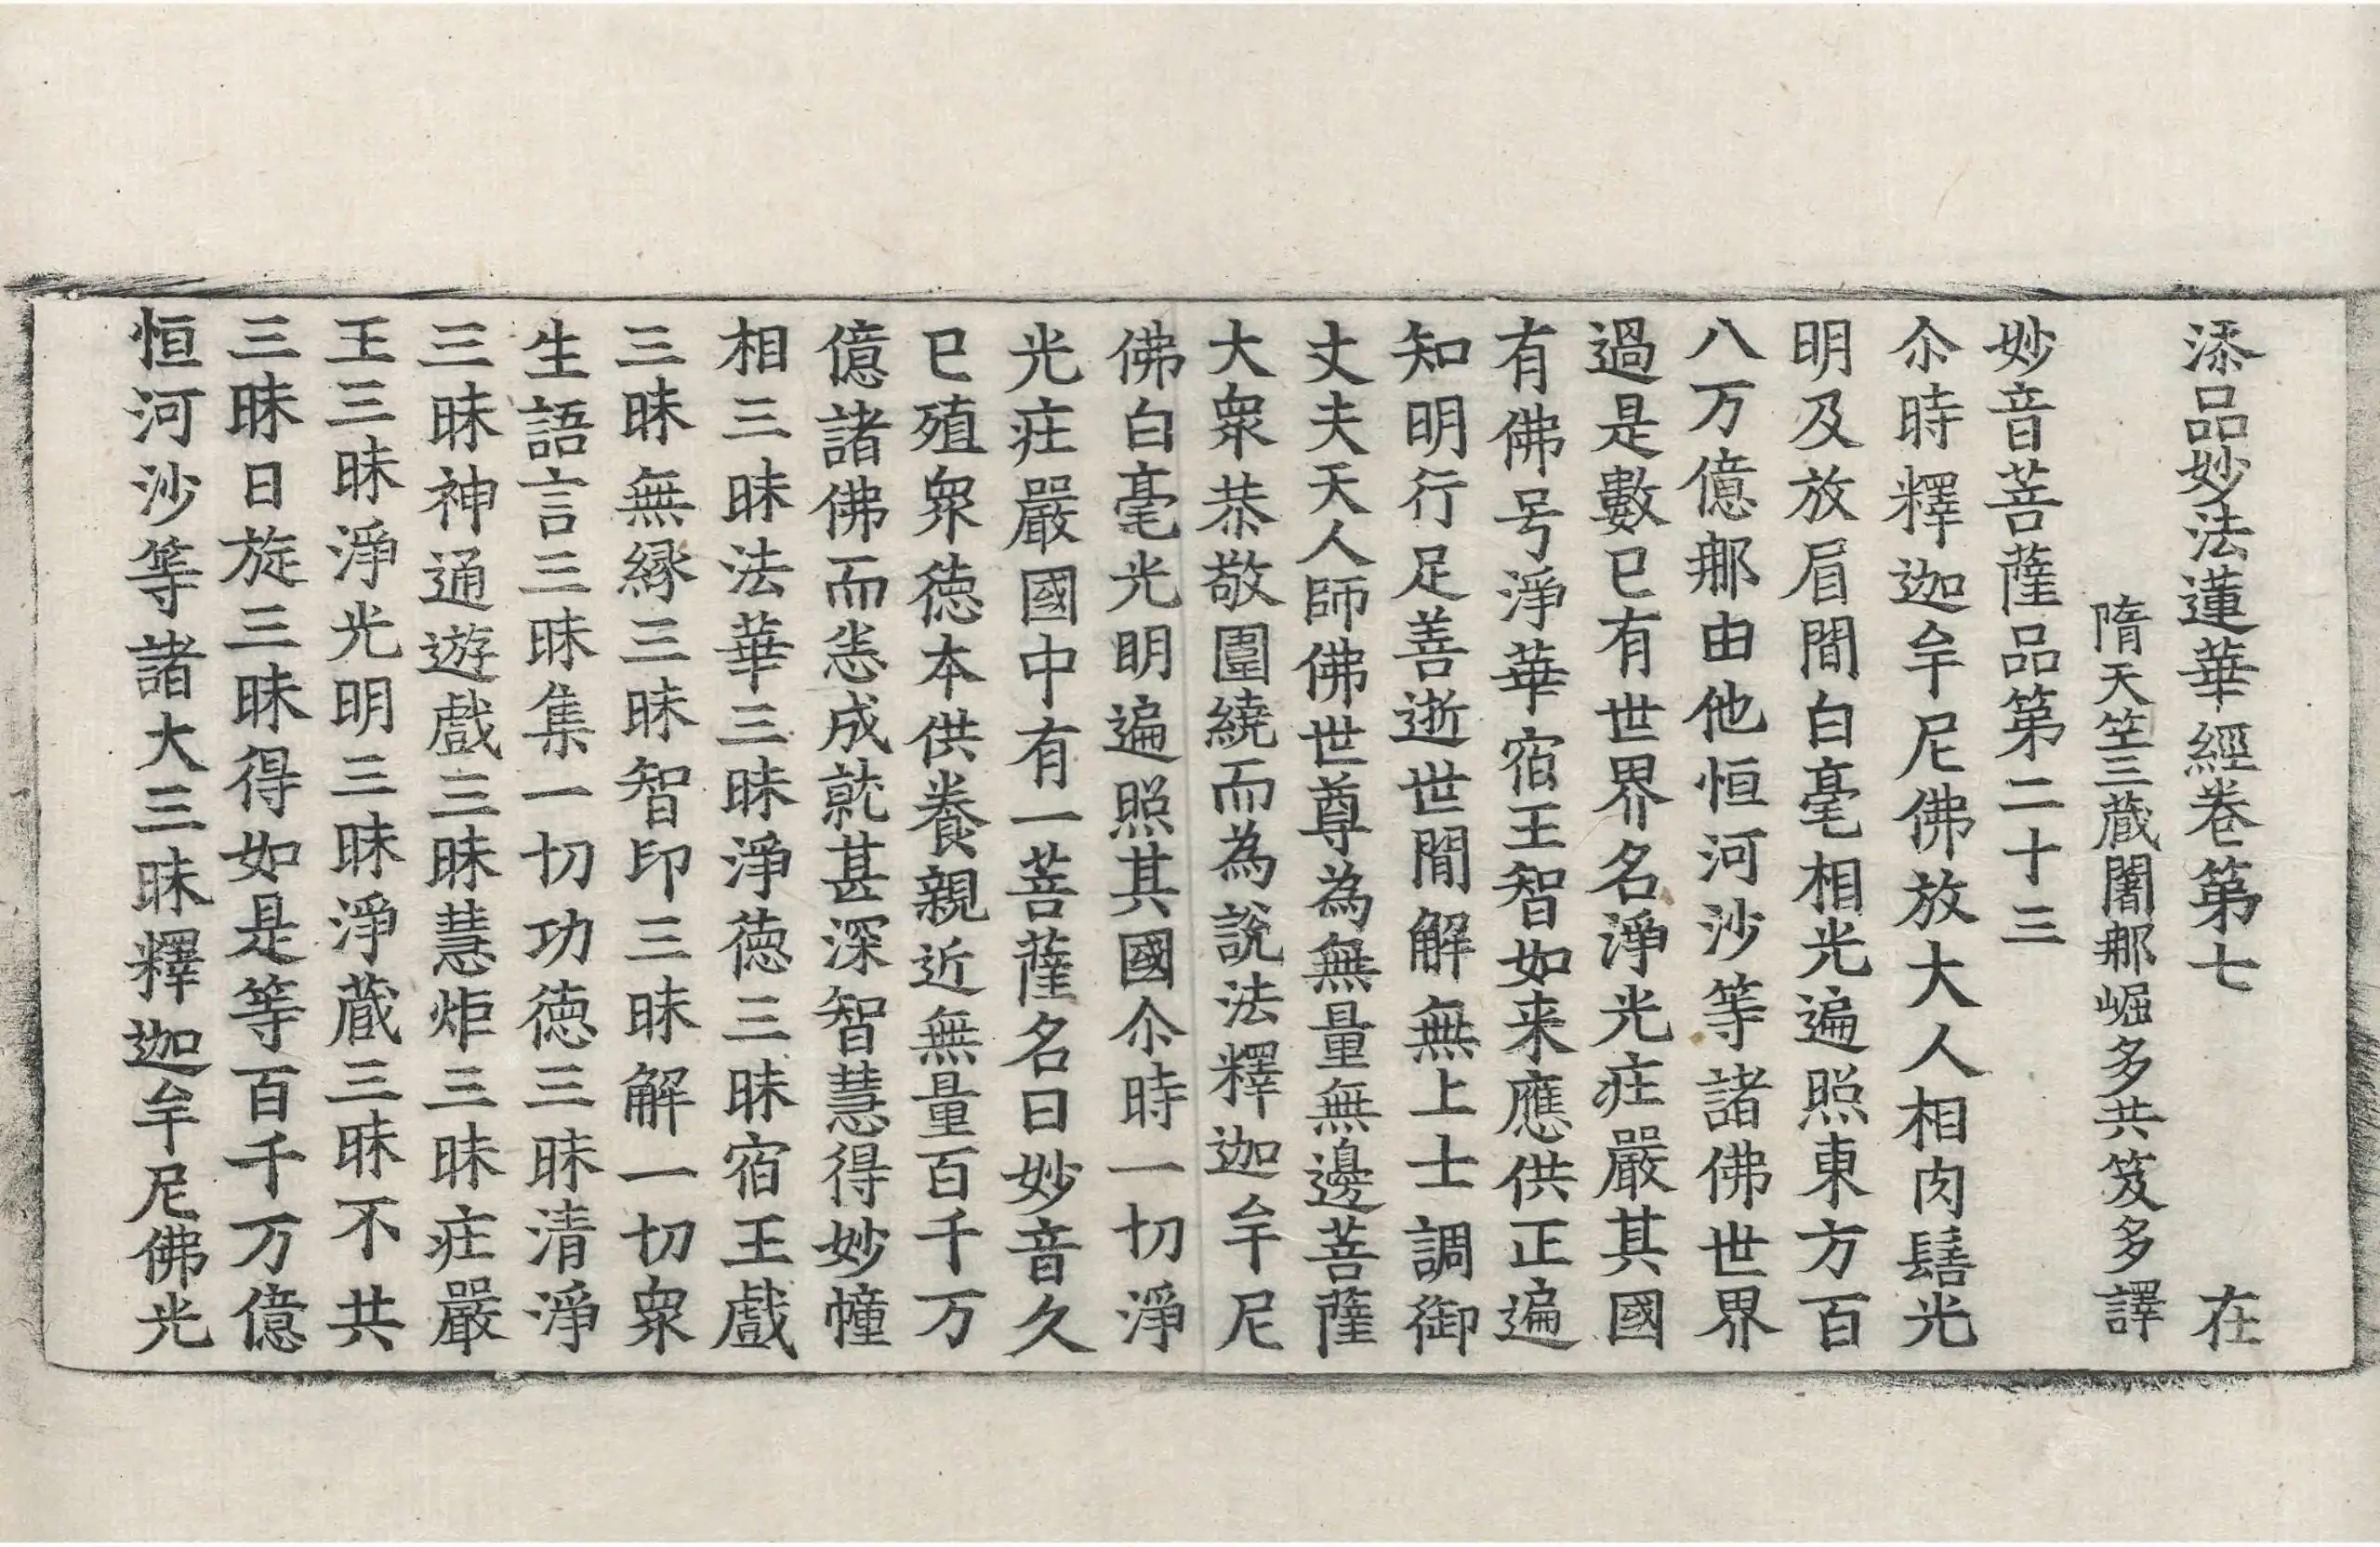 添品妙法蓮華經卷第七 在
隋天竺三藏闍那崛多共笈多譯
妙音菩薩品第二十三
尒時釋迦牟尼佛放大人相肉髻光
明及放眉間白毫相光遍照東方百
八万億那由他恒河沙等諸佛世界
過是數已有世界名淨光庄嚴其國
有佛号淨華宿王智如来應供正遍
知明行足善逝世間解無上士調御
丈夫天人師佛世尊為無量無邊菩薩
大衆恭敬圍繞而為說法釋迦牟尼
佛白毫光明遍照其國尒時一切淨
光庄嚴國中有一菩薩名曰妙音久
已殖衆徳本供養親近無量百千万
億諸佛而悉成就甚深智慧得妙幢
相三昧法華三昧淨徳三昧宿王戲
三昧無緣三昧智印三昧解一切衆
生語言三昧集一切功徳三昧清淨
三昧神通遊戲三昧慧炬三昧庄嚴
王三昧淨光明三昧淨藏三昧不共
三昧日旋三昧得如是等百千万億
恒河沙等諸大三昧釋迦牟尼佛光